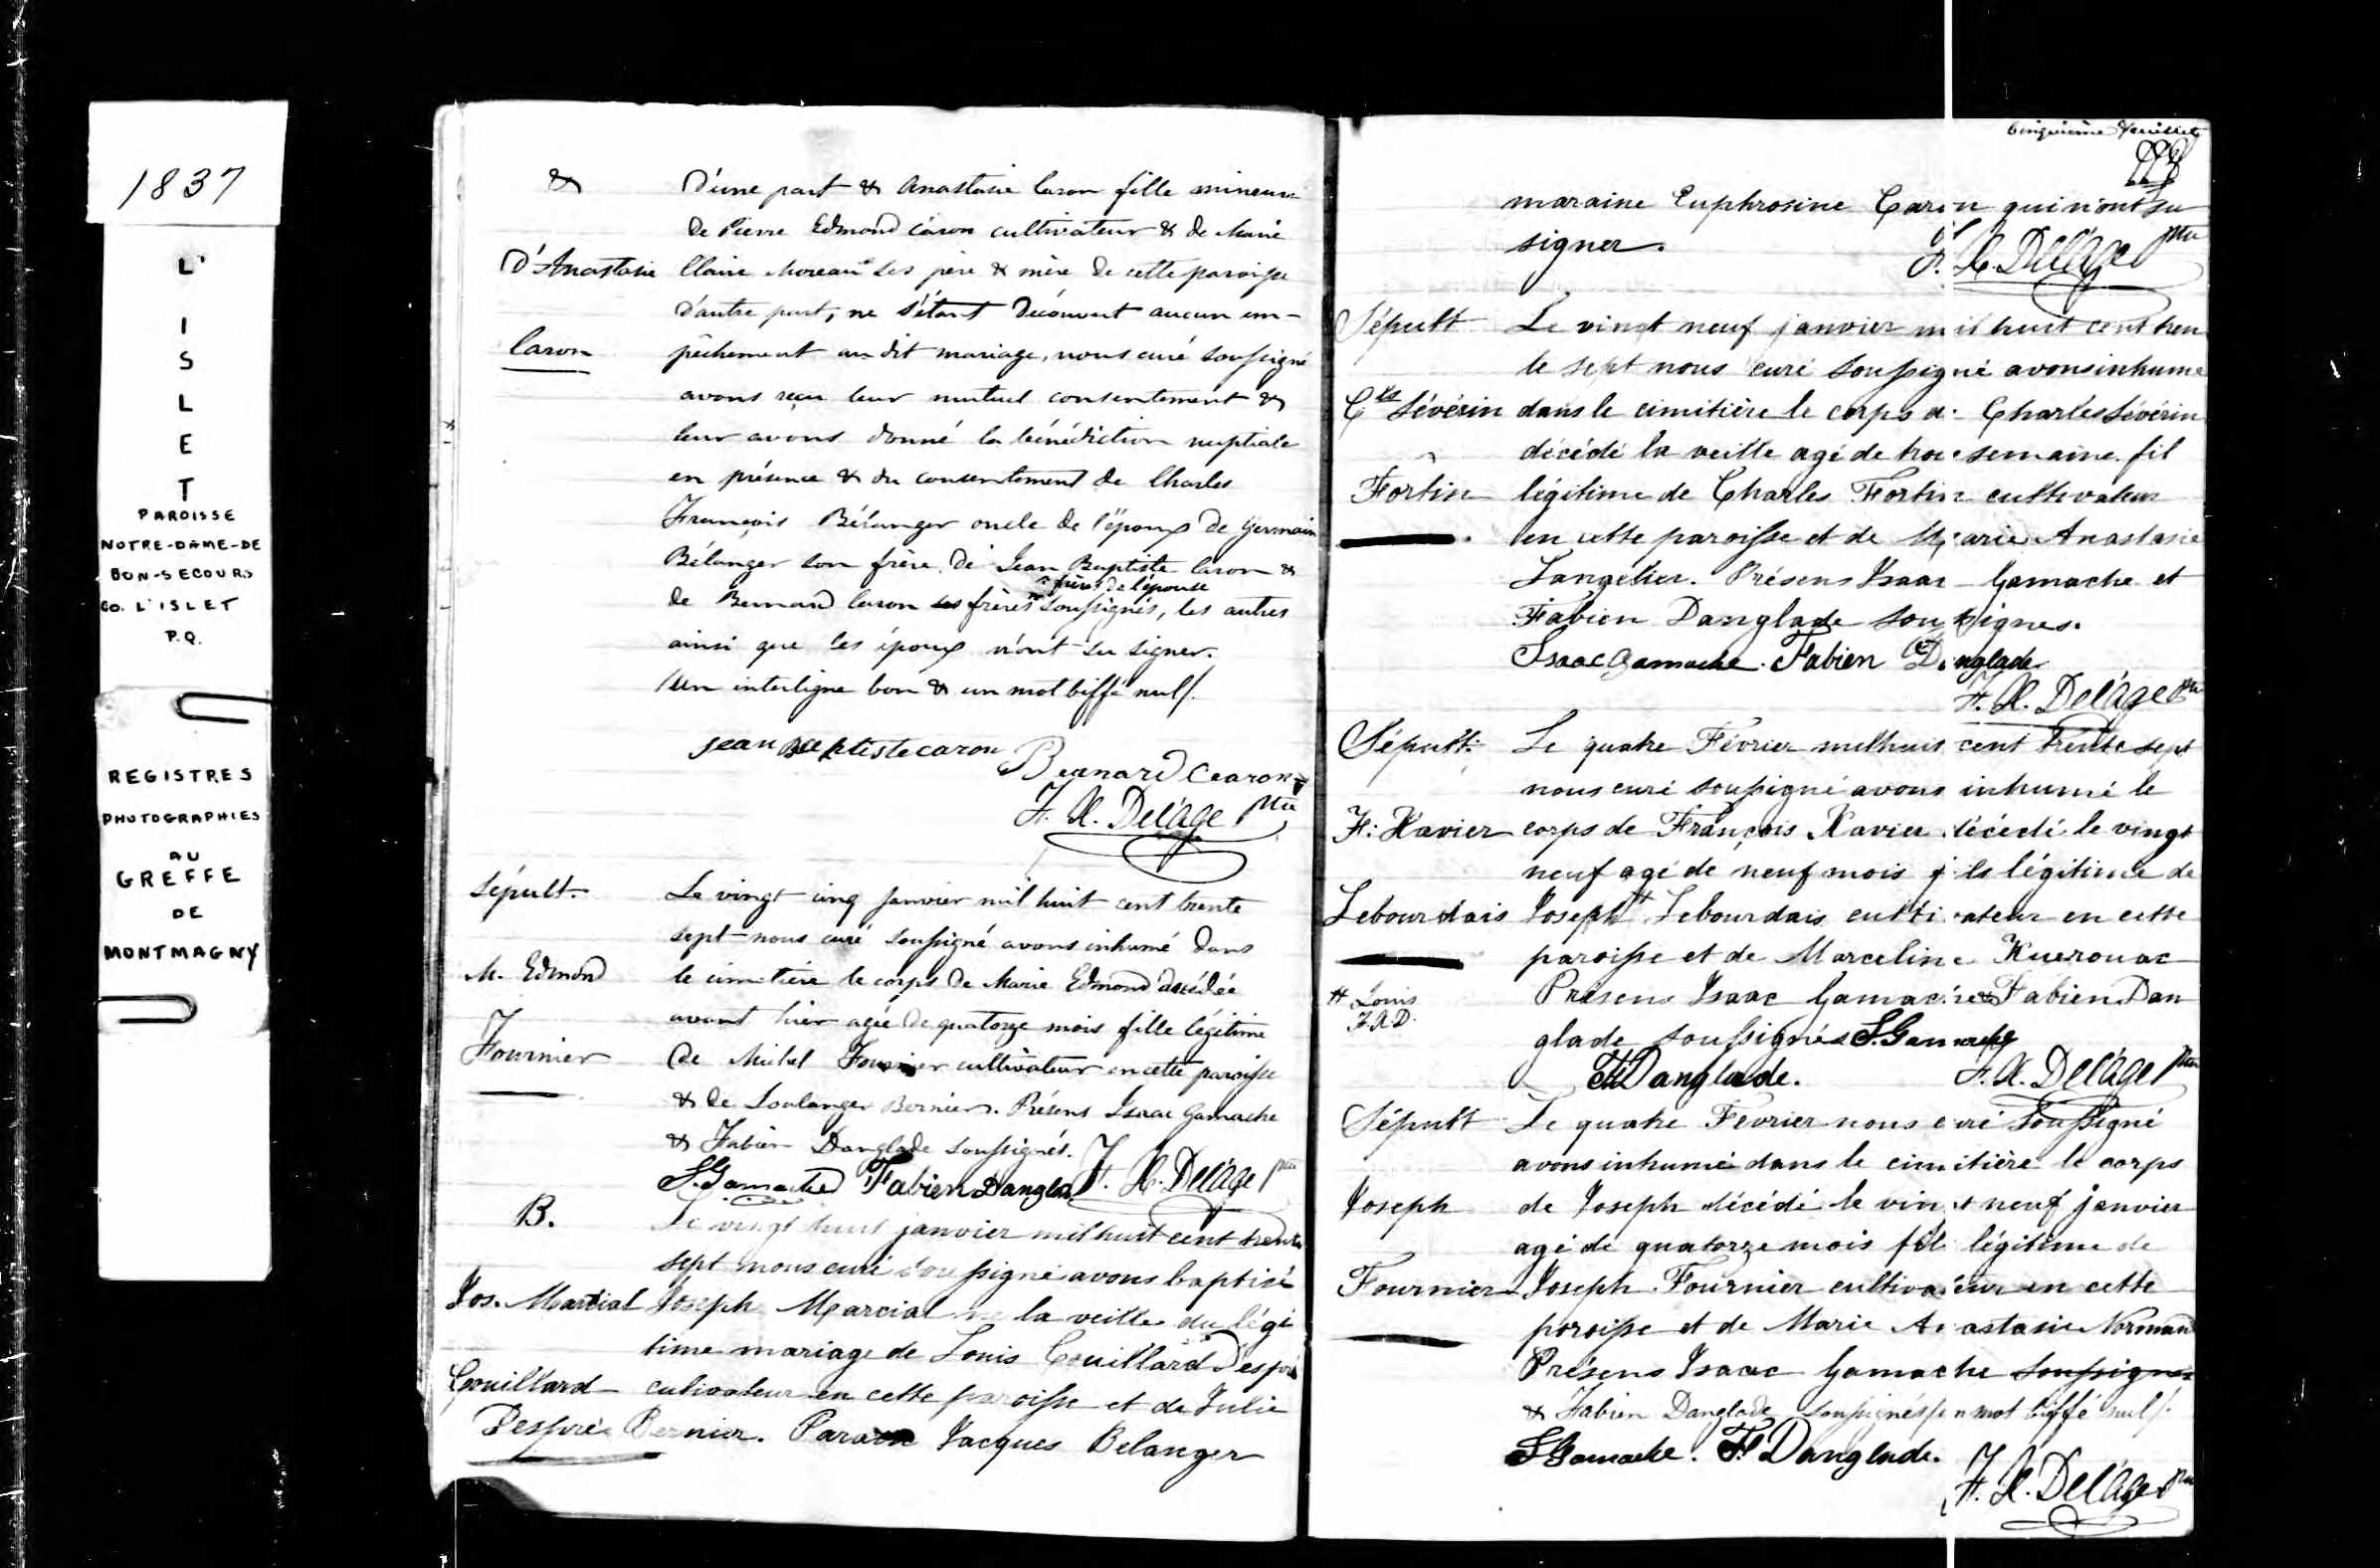 1837
L'
I
S
L
E
T
PAROISSE
NOTRE-DAME-DE
BON-SECOURS
CO. L'ISLET
P.Q.
REGISTRES
PHOTOGRAPHIES
AU
GREFFE
DE
MONTMAGNY
& D'une part & Anastasie Caron fille mineure
de Pierre Edmond Caron cultivateur & de Marie
D'Anastasie Claire Moreau ses père & mère de cette paroisse
d'autre part; ne s'étant découvert aucun em-
Caron pêchement au dit mariage, nous curé soussigné
avons reçu leur mutuel consentement &
leur avons donné la bénédiction nuptiale
en présence & du consentement de Charles
François Bélanger oncle de l'époux de Germain
Bélanger son frère, de Jean Baptiste Caron &
frères de l'épouse
de Bernard Caron ses frères soussignés, les autres
ainsi que les époux n'ont su signer.
/un interligne bon & un mot biffé nul/.
jean Baptiste caron
Bernard Caron
F. X. Delâge Ptre
Sépult. Le vingt cinq janvier mil huit cent trente
sept nous curé soussigné avons inhumé dans
M. Edmond le cimetière le corps de Marie Edmond décédée
avant hier agée de quatorze mois fille légitime
Fournier de Michel Fournier cultivateur en cette paroisse
& de Soulange Bernier. Présens Isaac Gamache
& Fabien Danglade soussignés.
I. Gamache Fabien Danglade F. X. Delâge Ptre
B. Le vingt huit janvier mil huit cent trente
sept nous curé soussigné avons baptisé
Jos. Martial Joseph Marcial né la veille du légi
time mariage de Louis Couillard Després
Couillard cultivateur en cette paroisse et de Julie
Després Bernier. Parain Jacques Belanger
Cinquième feuillet
maraine Euphrosine Caron qui n'ont su
signer. F. X. Delâge Ptre
Sépult Le vingt neuf janvier mil huit cent tren
te sept nous curé soussigné avons inhumé
Cls Sévérin dans le cimitière le corps de Charles Sévérin
décédé la veille agé de trois semaine fil
Fortin légitime de Charles Fortin cultivateur
en cette paroisse et de Marie Anastasie
Langelier. Présens Isaac Gamache et
Fabien Danglade soussignes.
Isaac Gamache. Fabien Danglade
F. X. Delâge Ptre
Sépult. Le quatre Février mil huit cent trente sept
nous curé soussigné avons inhumé le
F: Xavier corps de François Xavier décédé le vingt
neuf agé de neuf mois fils légitime de
Lebourdais Joseph # Lebourdais cultivateur en cette
paroisse et de Marceline Kuerouac
# Louis
F.X.D.
Présens Isaac Gamache & Fabien Dan
glade soussignés I. Gamache
F. Danglade. F. X. Delâge Ptre
Sépult Le quatre Février nous curé soussigné
avons inhumé dans le cimitière le corps
Joseph de Joseph décédé le vingt neuf janvier
agé de quatorze mois fils légitime de
Fournier Joseph Fournier cultivateur en cette
paroisse et de Marie Anastasie Normand
Présens Isaac Gamache soussignes
& Fabien Danglade soussignés /un mot biffé nul/.
I Gamache. F. Danglade.
F. X. Delâge Ptre